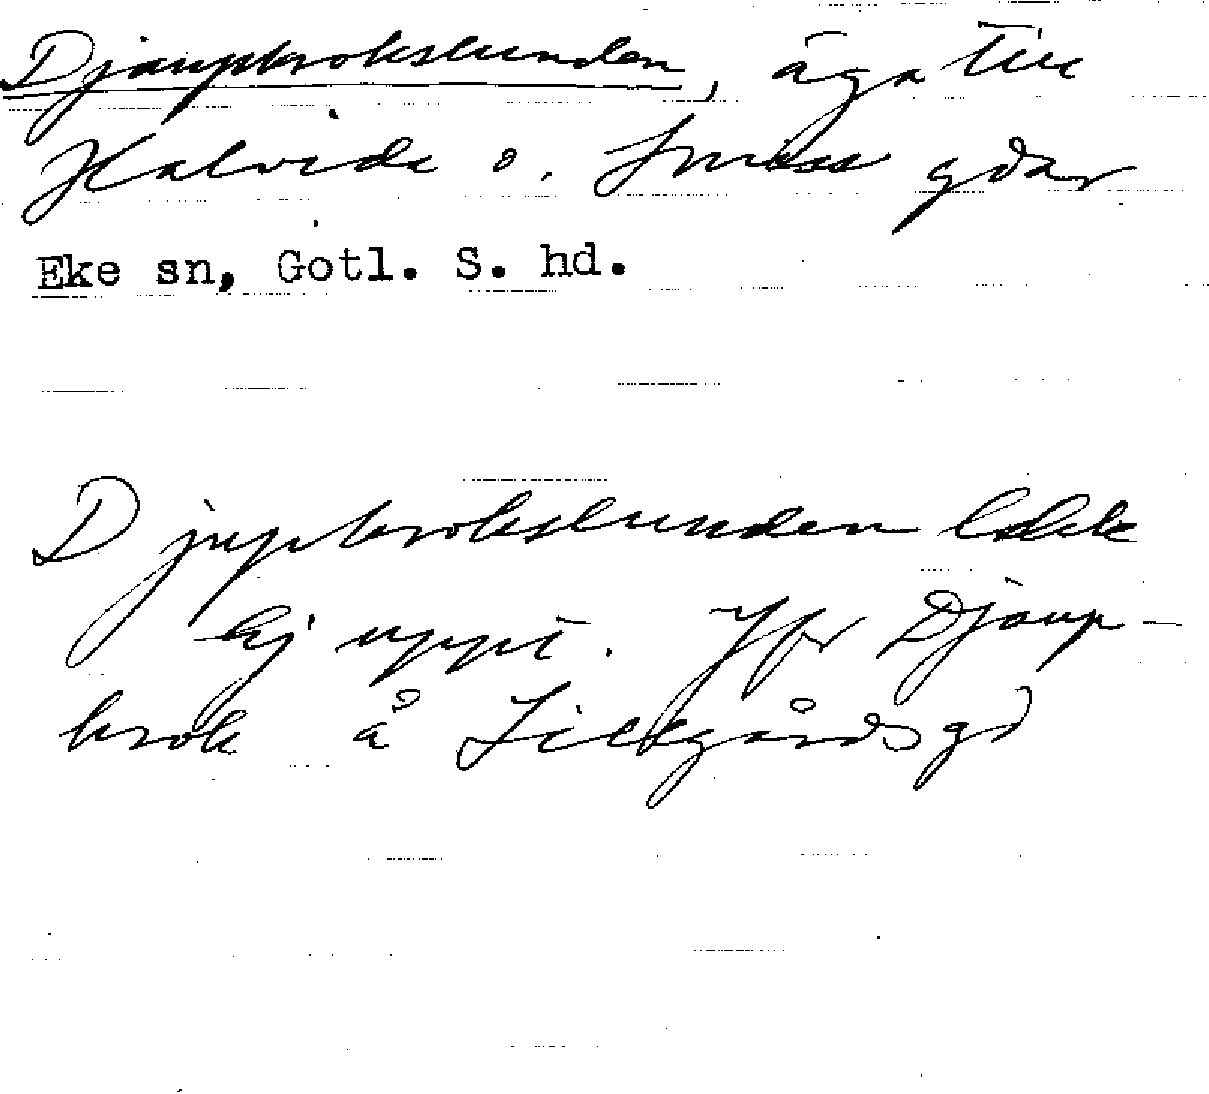 Djaupbrokslunden, äga till
Halvide o. Smiss gdar
Eke sn, Gotl. S. hd.
Djupbrokslunden
Ej uppt. Jfr Djaup-
brok å Lillgårds gd